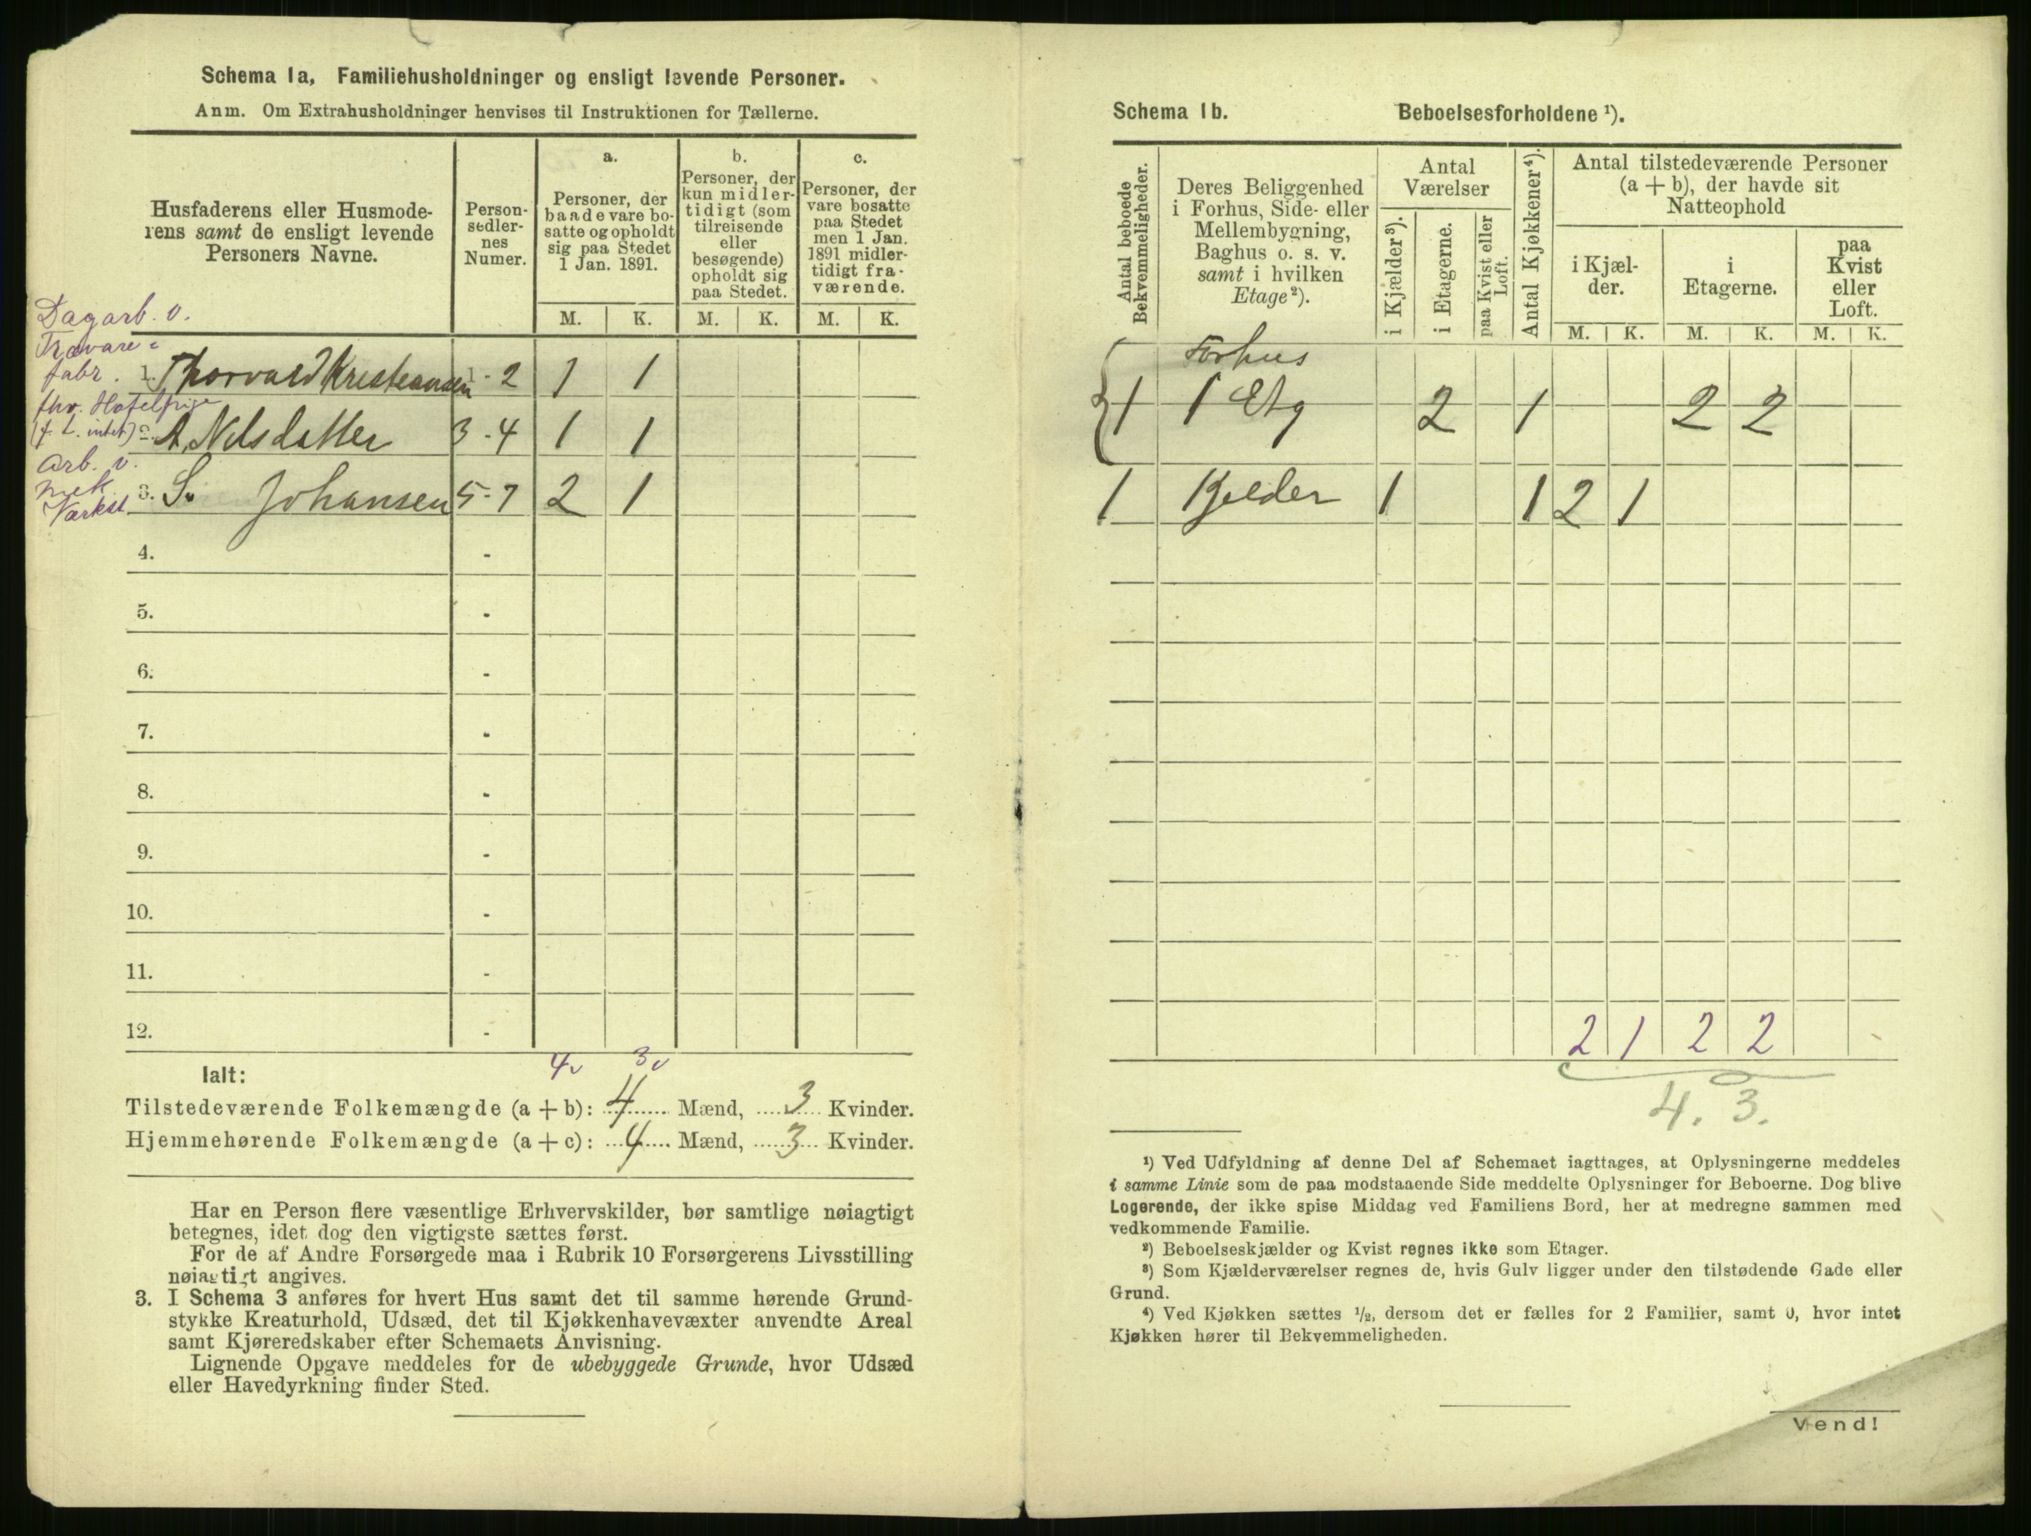 Schema 1a, Familiehusholdninger og ensligt levende Personer.
Anm. Om Extrahusholdninger henvises til Instruktionen for Tællerne.
Husfaderens eller Husmoderens samt de ensligt levende Personers Navne.
Personsedlernes Numer.
a. Personer, der baade vare bosatte og opholdt sig paa Stedet 1 Jan. 1891.
b. Personer, der kun midlertidigt (som tilreisende eller besøgende) opholdt sig paa Stedet.
c. Personer, der vare bosatte paa Stedet men 1 Jan. 1891 midlertidigt fraværende.
M. K. M. K. M. K.
Dagarb. v.
Trævare-
fabr. 1. Thorvald Kristeansen 1-2 1 1
fhv. Hotelpige
(f. t. intet) 2. A. Nilsdatter 3-4 1 1
Arb. v.
mek. 3. S. Johansen 5-7 2 1
Værkst.
4. -
5. -
6. -
7. -
8. -
9. -
10. -
11. -
12. -
4v 3v
Ialt:
Tilstedeværende Folkemængde (a + b): 4 Mænd, 3 Kvinder.
Hjemmehørende Folkemængde (a + c): 4 Mænd, 3 Kvinder.
Har en Person flere væsentlige Erhvervskilder, bør samtlige nøiagtigt
betegnes, idet dog den vigtigste sættes først.
For de af Andre Forsørgede maa i Rubrik 10 Forsørgerens Livsstilling
nøiagtigt angives.
3. I Schema 3 anføres for hvert Hus samt det til samme hørende Grund-
stykke Kreaturhold, Udsæd, det til Kjøkkenhavevæxter anvendte Areal
samt Kjøreredskaber efter Schemaets Anvisning.
Lignende Opgave meddeles for de ubebyggede Grunde, hvor Udsæd
eller Havedyrkning finder Sted.
Schema 1b. Beboelsesforholdene ¹).
Antal beboede Bekvemmeligheder.
Deres Beliggenhed i Forhus, Side- eller Mellembygning, Baghus o. s. v. samt i hvilken Etage ²).
Antal Værelser
i Kjælder ³).
i Etagerne.
paa Kvist eller Loft.
Antal Kjøkkener ⁴).
Antal tilstedeværende Personer (a + b), der havde sit Natteophold
i Kjælder.
i Etagerne.
paa Kvist eller Loft.
M. K. M. K. M. K.
Forhus
1 1 Etg 2 1 2 2
1 Kjelder 1 1 2 1
2 1 2 2
4. 3.
¹) Ved Udfyldning af denne Del af Schemaet iagttages, at Oplysningerne meddeles
i samme Linie som de paa modstaaende Side meddelte Oplysninger for Beboerne. Dog blive
Logerende, der ikke spise Middag ved Familiens Bord, her at medregne sammen med
vedkommende Familie.
²) Beboelseskjælder og Kvist regnes ikke som Etager.
³) Som Kjælderværelser regnes de, hvis Gulv ligger under den tilstødende Gade eller
Grund.
⁴) Ved Kjøkken sættes ½, dersom det er fælles for 2 Familier, samt 0, hvor intet
Kjøkken hører til Bekvemmeligheden.
Vend!